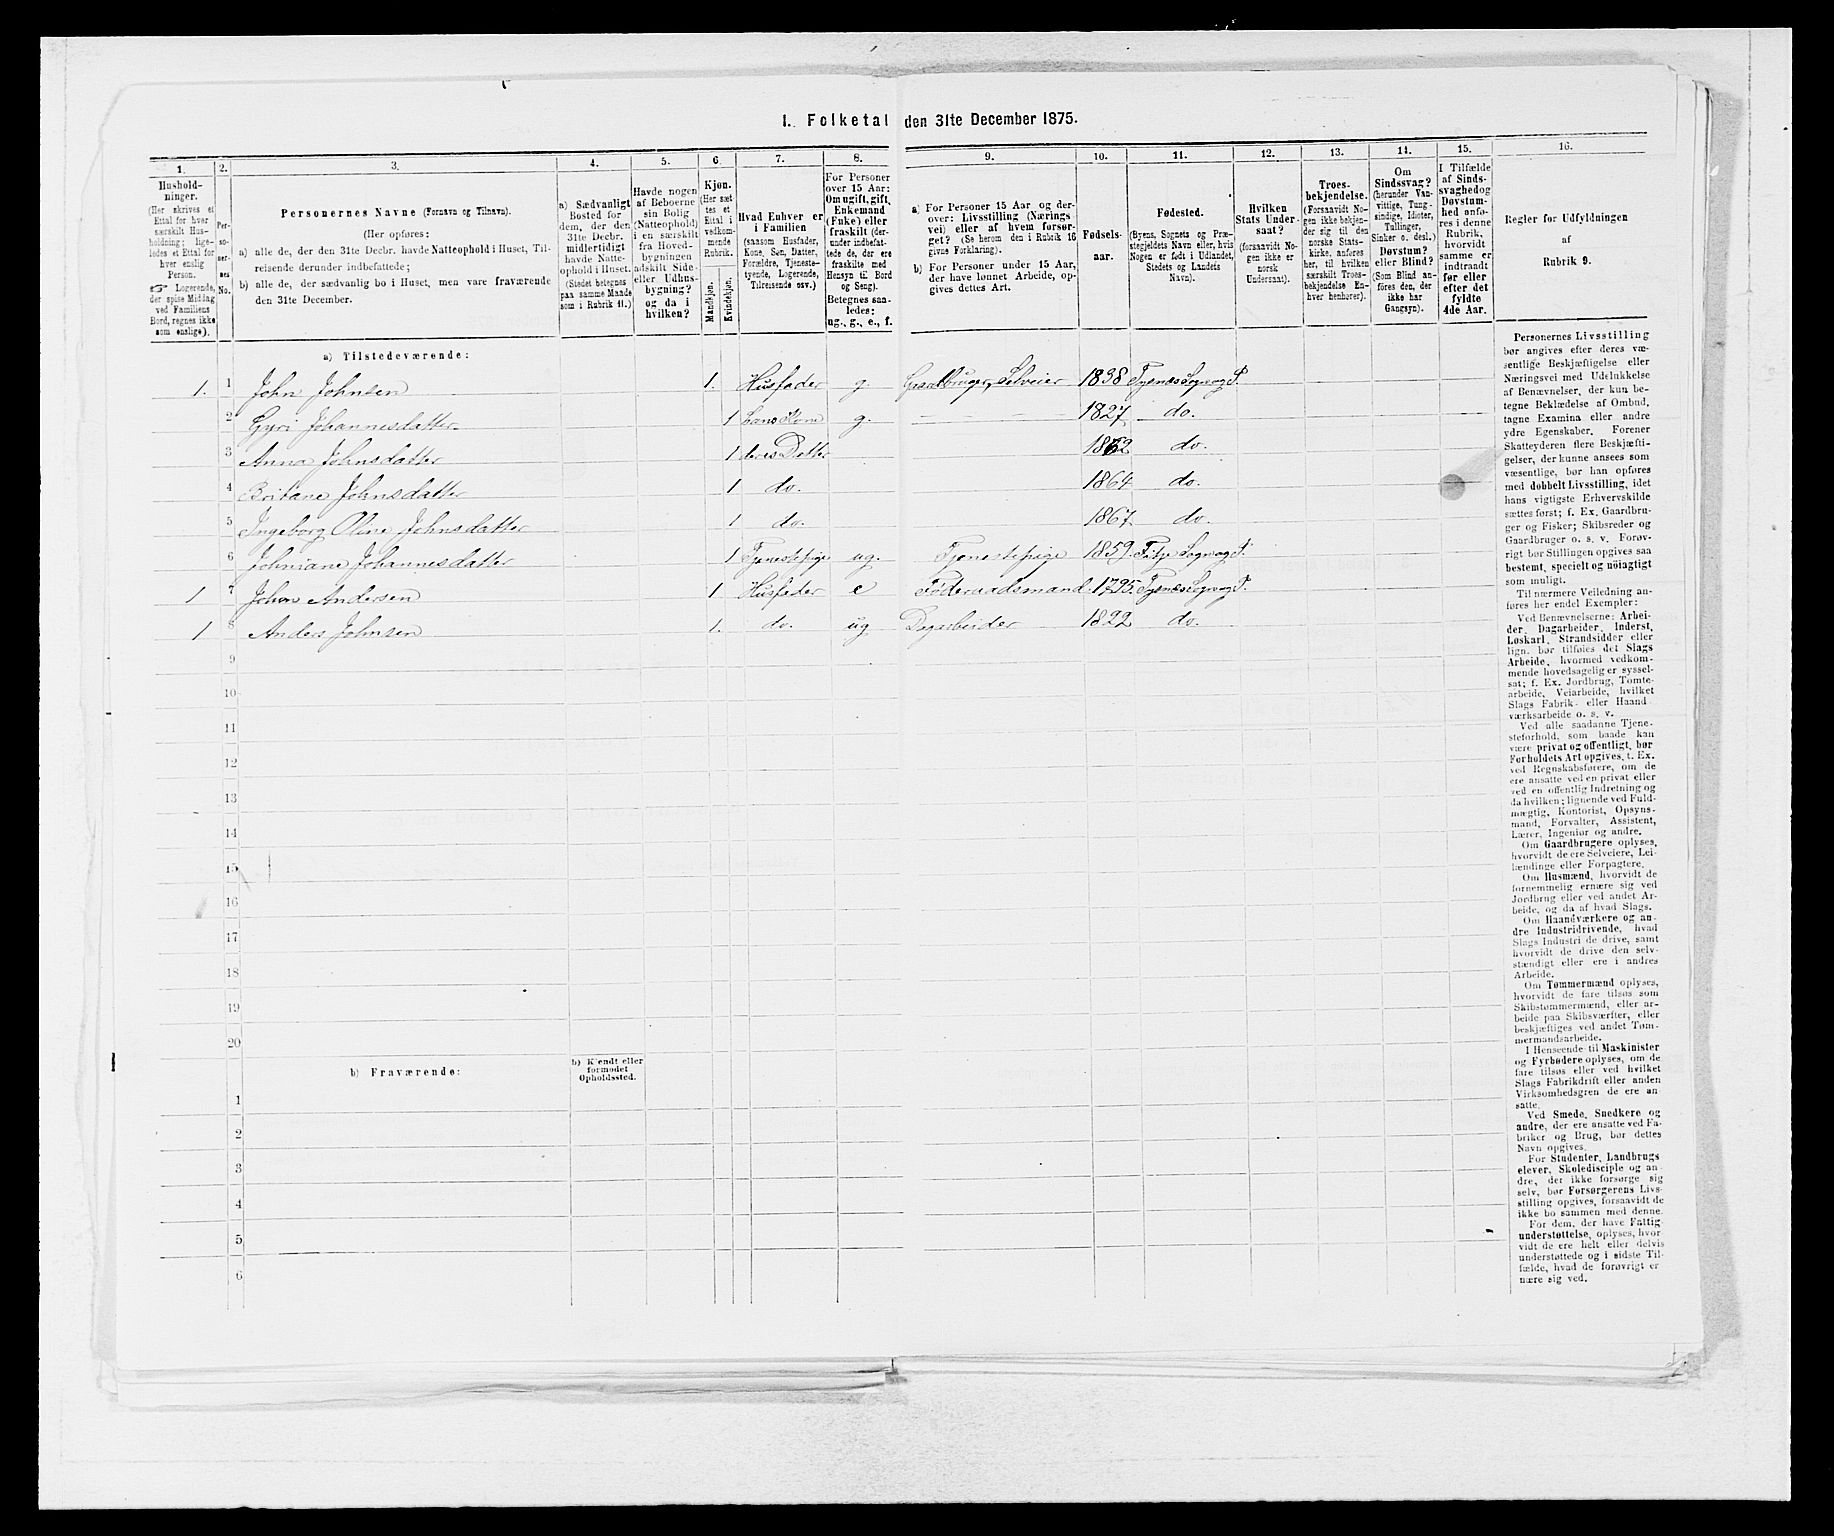 1. Folketal den 31te December 1875.
1. 2. 3. 4. 5. 6. 7. 8. 9. 10. 11. 12. 13. 14. 15. 16.
Hushold-
ninger.
(Her skrives et
Ettal for hver
særskilt Hus-
holdning; lige-
ledes et Ettal for
hver enslig
Person.
☞ Logerende,
der spise Middag
ved Familiens
Bord, regnes ikke
som enslige).
Per-
so-
ner-
nes
No.
Personernes Navne (Fornavn og Tilnavn).
(Her opføres:
a) alle de, der den 31te Decbr. havde Natteophold i Huset, Til-
reisende derunder indbefattede;
b) alle de, der sædvanlig bo i Huset, men vare fraværende
den 31te December.
a) Sædvanligt
Bosted for
dem, der den
31te Decbr.
midlertidigt
havde Natte-
ophold i Huset.
(Stedet betegnes
paa samme Maade
som i Rubrik 11.)
Havde nogen
af Beboerne
sin Bolig
(Natteophold)
i en særskilt
fra Hoved-
bygningen
adskilt Side-
eller Udhus-
bygning?
og da i
hvilken?
Kjøn.
(Her sæt-
tes et
Ettal i
vedkom-
mende
Rubrik.)
Mandkjøn.
Kvindekjøn.
Hvad Enhver er
i Familien
(saasom Husfader,
Kone, Søn, Datter,
Forældre, Tjeneste-
tyende, Logerende,
Tilreisende osv.)
For Personer
over 15 Aar:
Om ugift, gift,
Enkemand
(Enke) eller
fraskilt (der-
under indbefat-
tede de, der ere
fraskilte med
Hensyn til Bord
og Seng).
Betegnes saa-
ledes:
ug., g., e., f.
a) For Personer 15 Aar og der-
over: Livsstilling (Nærings-
vei) eller af hvem forsør-
get? (Se herom den i Rubrik 16
givne Forklaring).
b) For Personer under 15 Aar,
der have lønnet Arbeide, op-
gives dettes Art.
Fødsels-
aar.
Fødested.
(Byens, Sognets og Præ-
stegjeldets Navn eller, hvis
Nogen er født i Udlandet,
Stedets og Landets
Navn).
Hvilken
Stats Under-
saat?
(forsaavidt No-
gen ikke er
norsk
Undersaat).
Troes-
bekjendelse.
(Forsaavidt No-
gen ikke bekjen-
der sig til den
norske Stats-
kirke, anføres
her, til hvilken
særskilt Troes-
bekjendelse En-
hver henhører).
Om
Sindssvag?
(herunder Van-
vittige, Tung-
sindige, Idioter,
Tullinger,
Sinker o. desl.)
Døvstum?
eller Blind?
(Som Blind an-
føres den, der
ikke har
Gangsyn).
I Tilfælde
af Sinds-
svaghed og
Døvstum-
hed anfø-
res i denne
Rubrik,
hvorvidt
samme er
indtraadt
før eller
efter det
fyldte
4de Aar.
Regler for Udfyldningen
af
Rubrik 9.
a) Tilstedeværende:
1. 1 John Johnsen 1. Husfader g. Gaardbruger, Selveier 1838 Tysnæs Sogn og P.
2 Gyri Johannesdatter 1 hans Kone g. 1827 do.
3 Anna Johnsdatter 1 deres Datter 1862 do.
4 Britane Johnsdatter 1 do. 1864 do.
5 Ingeborg Oline Johnsdatter 1 do. 1867 do.
6 Johniane Johannesdatter 1 Tjenestepige ug. Tjenestepige 1859. Fitje Sogn og P.
1 7 John Andersen 1 Husfader e Føderaadsmand. 1795. Tysnæs Sogn og P.
1 8 Anders Johnsen 1. do. ug Dagarbeider 1822 do.
9
10
11
12
13
14
15
16
17
18
19
20
b) Fraværende:
b) Kjendt eller
formodet
Opholdssted.
1
2
3
4
5
6
Personernes Livsstilling
bør angives efter deres væ-
sentlige Beskjæftigelse eller
Næringsvei med Udelukkelse
af Benævnelser, der kun be-
tegne Beklædelse af Ombud,
tagne Examina eller andre
ydre Egenskaber. Forener
Skatteyderen flere Beskjæfti-
gelser, der kunne ansees som
væsentlige, bør han opføres
med dobbelt Livsstilling, idet
hans vigtigste Erhvervskilde
sættes først; f. Ex. Gaardbru-
ger og Fisker; Skibsreder og
Gaardbruger o. s. v. Forøv-
rigt bør Stillingen opgives saa
bestemt, specielt og nøiagtigt
som muligt.
Til nærmere Veiledning an-
føres her endel Exempler:
Ved Benævnelserne: Arbei-
der, Dagarbeider, Inderst,
Løskarl, Strandsidder eller
lign. bør tilføies det Slags
Arbeide, hvormed vedkom-
mende hovedsagelig er syssel-
sat; f. Ex. Jordbrug, Tomte-
arbeide, Veiarbeide, hvilket
Slags Fabrik- eller Haand-
værksarbeide o. s. v.
Ved alle saadanne Tjene-
steforhold, som baade kan
være privat og offentligt, bør
Forholdets Art opgives, f. Ex.
ved Regnskabsførere, om de
ere ansatte ved en privat eller
ved en offentlig Indretning og
da hvilken; lignende ved Fuld-
mægtig, Kontorist, Opsyns-
mand, Forvalter, Assistent,
Lærer, Ingeniør og andre.
Om Gaardbrugere oplyses,
hvorvidt de ere Selveiere, Lei-
lændinge eller Forpagtere.
Om Husmænd, hvorvidt de
fornemmelig ernære sig ved
Jordbrug eller ved andet Ar-
beide, og da af hvad Slags.
Om Haandværkere og an-
dre Industridrivende, hvad
Slags Industri de drive, samt
hvorvidt de drive den selv-
stændigt eller ere i andres
Arbeide.
Om Tømmermænd oplyses,
hvorvidt de fare tilsøs som
Skibstømmermænd, eller ar-
beide paa Skibsværfter, eller
beskjæftiges ved andet Tøm-
mermandsarbeide.
I Henseende til Maskinister
og Fyrbødere oplyses, om de
fare tilsøs eller ved hvilket
Slags Fabrikdrift eller anden
Virksomhedsgren de ere an-
satte.
Ved Smede, Snedkere og
andre, der ere ansatte ved Fa-
briker og Brug, bør dettes
Navn opgives.
For Studenter, Landbrugs-
elever, Skoledisciple og an-
dre, der ikke forsørge sig
selv, bør Forsørgerens Livs-
stilling opgives, forsaavidt de
ikke bo sammen med denne.
For dem, der have Fattig-
understøttelse, oplyses, hvor-
vidt de ere helt eller delvis
understøttede og i sidste Til-
fælde, hvad de forøvrigt er-
nære sig ved.